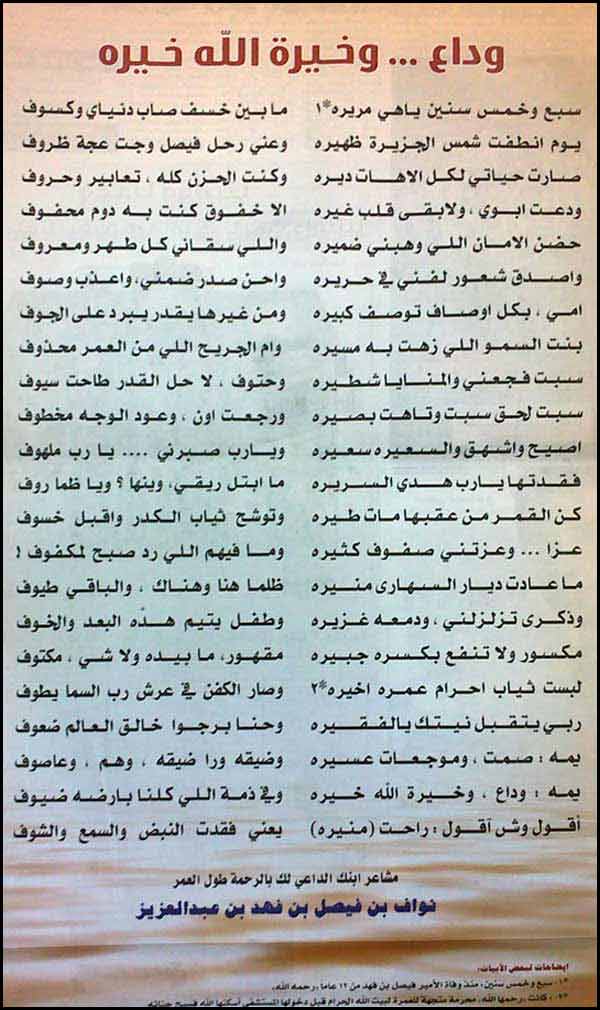 وداع ... وخيرة الله خيره
سبع وخمس سنين ياهي مريره*١ ما بين خسف صاب دنياي وكسوف
يوم انطفت شمس الجزيرة ظهيره وعني رحل فيصل وجت عجة ظروف
صارت حياتي لكل الاهات ديره وكنت الحزن كله ، تعابير وحروف
ودعت ابوي ، ولابقى قلب غيره الا خفوق كنت به دوم محفوف
حضن الامان اللي وهبني ضميره واللي سقاني كل طهر ومعروف
واصدق شعور لفني في حريره واحن صدر ضمني، واعذب وصوف
امي ، بكل اوصاف توصف كبيره ومن غيرها يقدر يبرد على الجوف
بنت السمو اللي زهت به مسيره وام الجريح اللي من العمر محذوف
سبت فجعني والمنايا شطيره وحتوف ، لا حل القدر طاحت سيوف
سبت لحق سبت وتاهت بصيره ورجعت اون ، وعود الوجه مخطوف
اصيح واشهق والسعيره سعيره ويارب صبرني .... يا رب ملهوف
فقدتها يارب هدي السريره ما ابتل ريقي، وينها ؟ ويا ظما روف
كن القمر من عقبها مات طيره وتوشح ثياب الكدر واقبل خسوف
عزا ... وعزتني صفوف كثيره وما فيهم اللي رد صبح لمكفوف !
ما عادت ديار السهارى منيره ظلما هنا وهناك ، والباقي طيوف
وذكرى تزلزلني ، ودمعه غزيره وطفل يتيم هده البعد والخوف
مكسور ولا تنفع بكسره جبيره مقهور، ما بيده ولا شي ، مكتوف
لبست ثياب احرام عمره اخيره*٢ وصار الكفن في عرش رب السما يطوف
ربي يتقبل نيتك يالفقيره وحنا برجوا خالق العالم ضعوف
يمه : صمت ، وموجعات عسيره وضيقه ورا ضيقه ، وهم ، وعاصوف
يمه : وداع ، وخيرة الله خيره وفي ذمة اللي كلنا بارضه ضيوف
أقول وش آقول : راحت (منيره) يعني فقدت النبض والسمع والشوف
مشاعر ابنك الداعي لك بالرحمة طول العمر
نواف بن فيصل بن فهد بن عبدالعزيز
ايضاحات لبعض الأبيات:
*١ - سبع وخمس سنين، منذ وفاة الأمير فيصل بن فهد من ١٢ عاما، رحمه الله.
*٢ - كانت ، رحمها الله، محرمة متجهة للعمرة لبيت الله الحرام قبل دخولها المستشفى أسكنها الله فسيح جناته